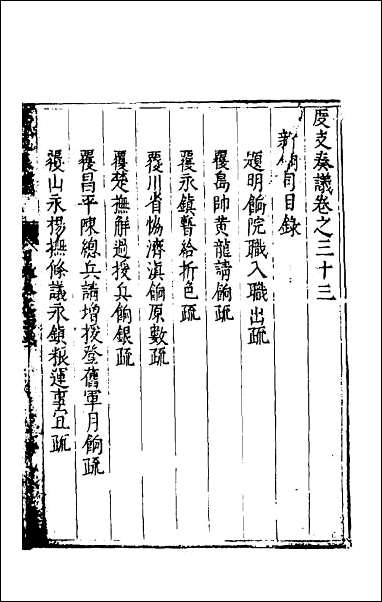 度支奏議卷之三十三
新餉司目錄
題明餉院職入職出疏
覆島帥黃龍請餉疏
覆永鎮暫給折色疏
覆川省協濟滇餉原數疏
覆楚撫解過援兵餉銀疏
覆昌平陳總兵請增援登舊軍月餉疏
覆山永楊撫條議永鎮粮運事宜疏